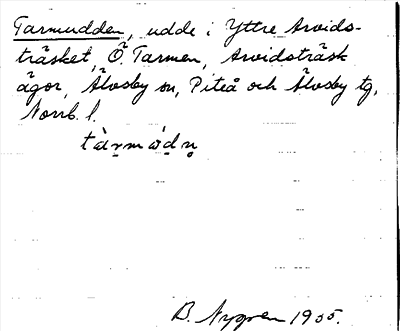 Tarmudden, udde i Yttre Arvids-
träsket, Ö. Tarmen, Arvidsträsk
ägor, Älvsby sn, Piteå och Älvsby tg,
Norrb. l.
B. Nygren 1935.